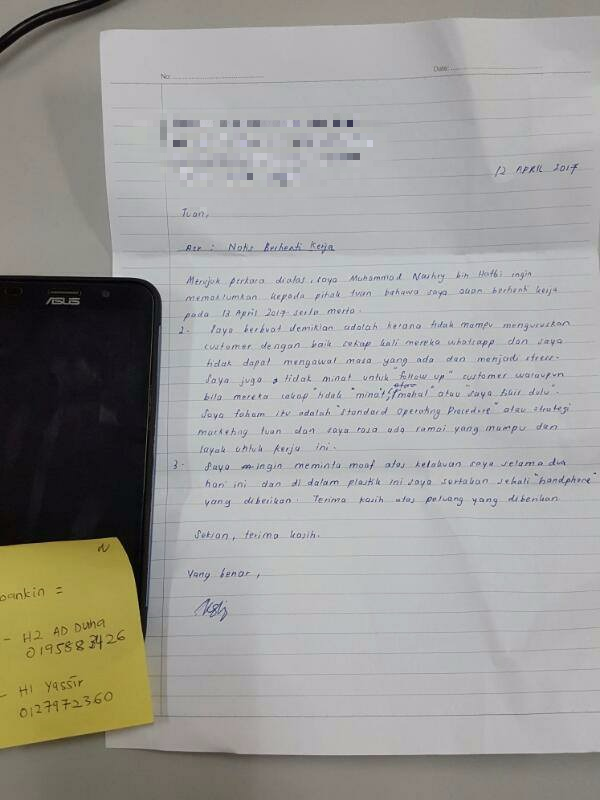 No:
Date:
12 APRIL 2017
Tuan,
Per : Notis Berhenti Kerja
Merujuk perkara diatas, saya Muhammad Nashry bin Hatbi ingin
memaklumkan kepada pihak tuan bahawa saya akan berhenti kerja
pada 13 April 2017 serta merta.
2. Saya berbuat demikian adalah kerana tidak mampu menguruskan
customer dengan baik setiap kali mereka whatsapp dan saya
tidak dapat mengawal masa yang ada dan menjadi stress.
Saya juga tidak minat untuk "follow up" customer walaupun
bila mereka cakap "tidak "minat", atau "mahal" atau "saya fikir dulu".
Saya faham itu adalah "Standard Operating Procedure" atau strategi
marketing tuan dan saya rasa ada ramai yang mampu dan
layak untuk kerja ini.
3. Saya ingin meminta maaf atas kelakuan saya selama dua
hari ini dan di dalam plastik ini saya sertakan sekali "handphone"
yang diberikan. Terima kasih atas peluang yang diberikan.
Sekian, terima kasih.
Yang benar,
ASUS
N
bankin =
- H2 AD Duha
0195883426
- H1 Yassir
0127972360